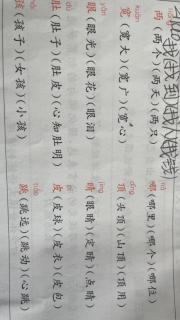 找(找到)(找人)(找钱)
nǎ
两(两个)(两天)(两只) 哪(哪里)(哪个)(哪位)
kuān dǐng
宽(宽大)(宽广)(宽心) 顶(头顶)(山顶)(顶用)
yǎn jīng
眼(眼光)(眼花)(眼泪) 睛(眼睛)(定睛)(点睛)
dù pí
肚(肚子)(肚皮)(心知肚明) 皮(皮球)(皮衣)(皮包)
hái tiào
孩(孩子)(女孩)(小孩) 跳(跳远)(跳动)(心跳)